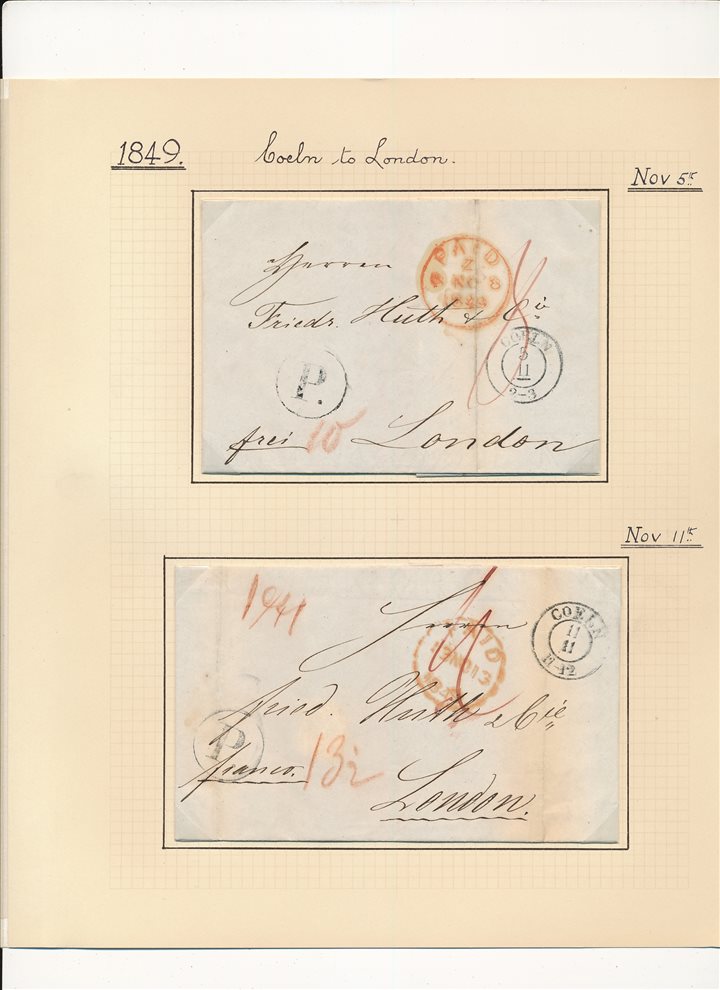 1849.
Coeln to London.
Nov 5th
PAID
Z
NO 8
1849
Herren
Friedr. Huth & Cie
COELN
5
11
2-3
P.
frei 10
London
Nov 11th
PAID
NO 13
COELN
11
11
11-12
Herren
Fried. Huth & Cie
P
franco.
London.